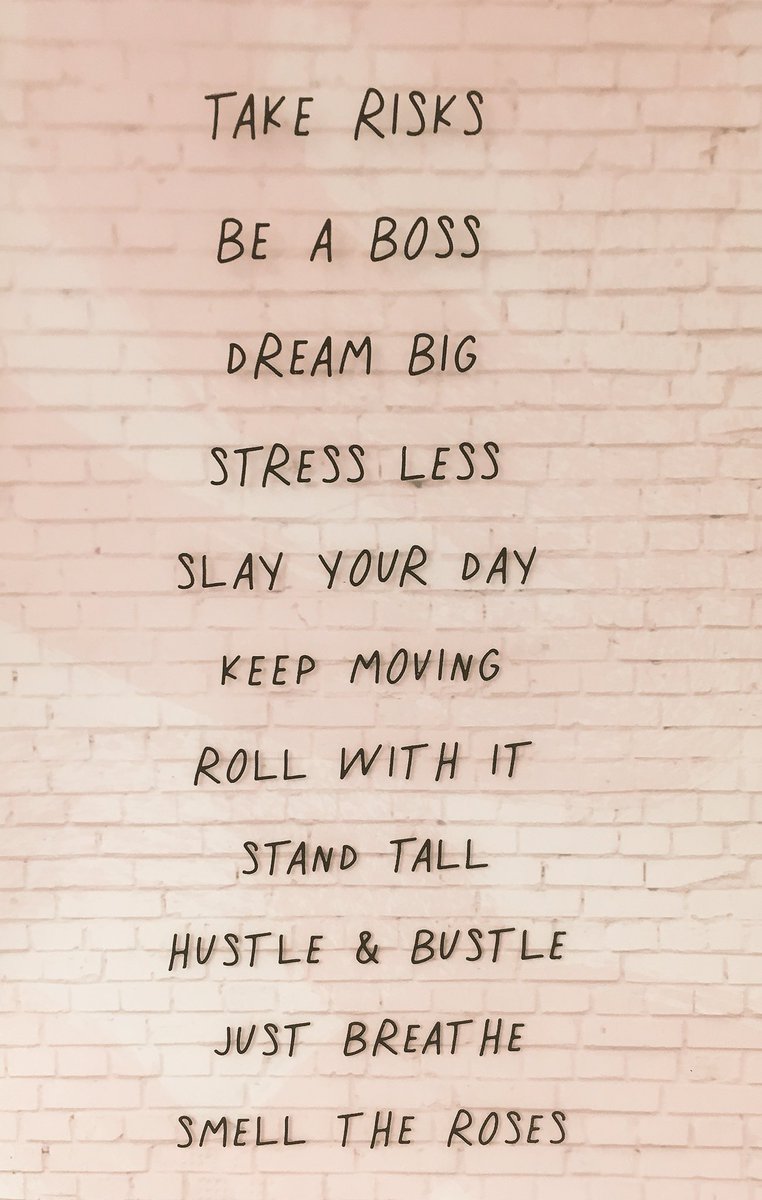 TAKE RISKS
BE A BOSS
DREAM BIG
STRESS LESS
SLAY YOUR DAY
KEEP MOVING
ROLL WITH IT
STAND TALL
HUSTLE & BUSTLE
JUST BREATHE
SMELL THE ROSES